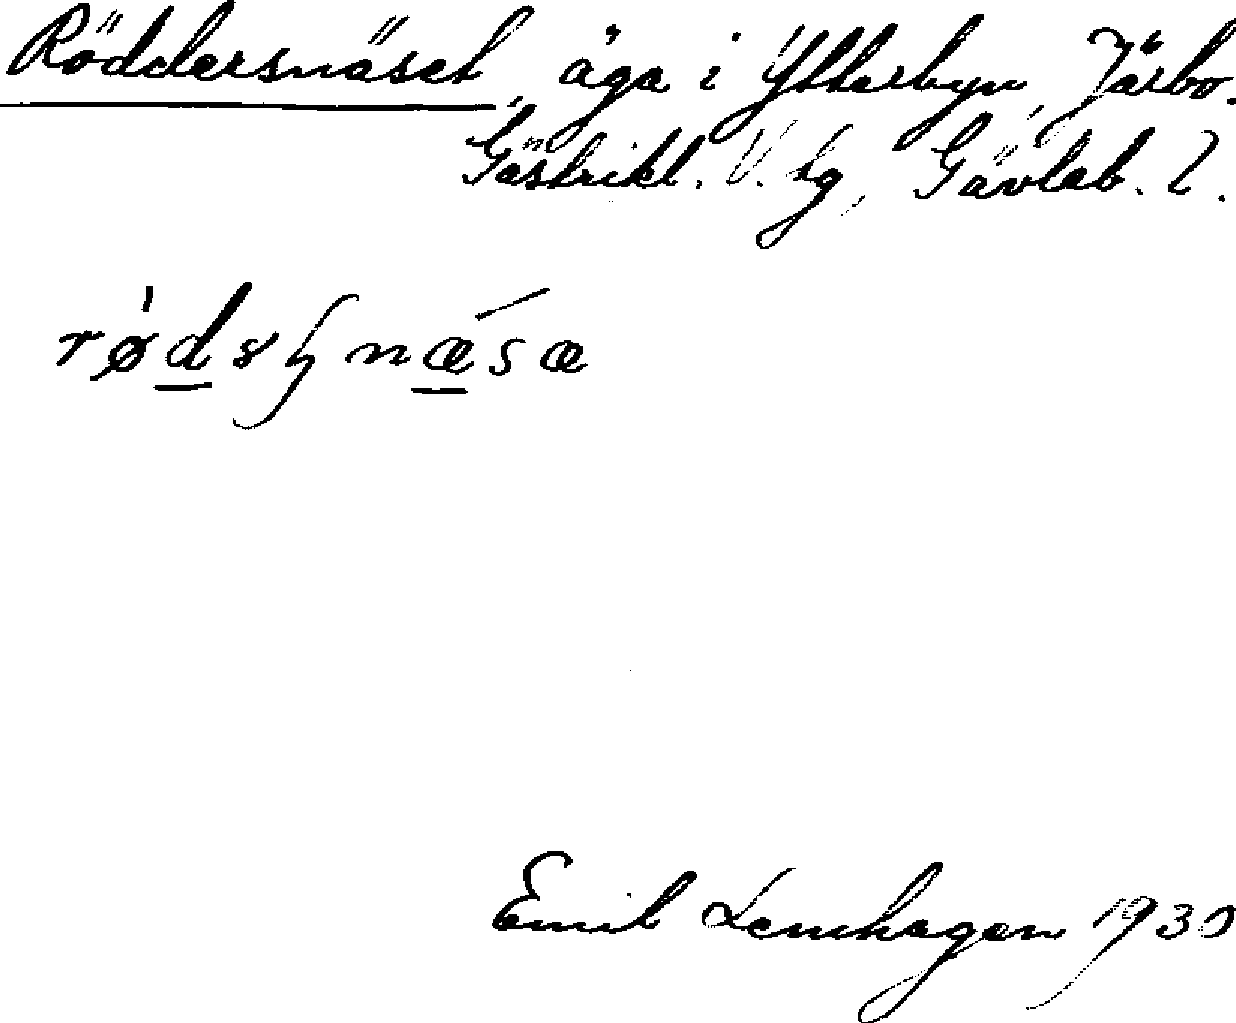 Röddersnäset, äga i Ytterbyn, Järbo.
Gästrikl. V. tg, Gävleb. l.
rø̀d̲ʂnǽ̲sæ
Emil Lenhagen 1930